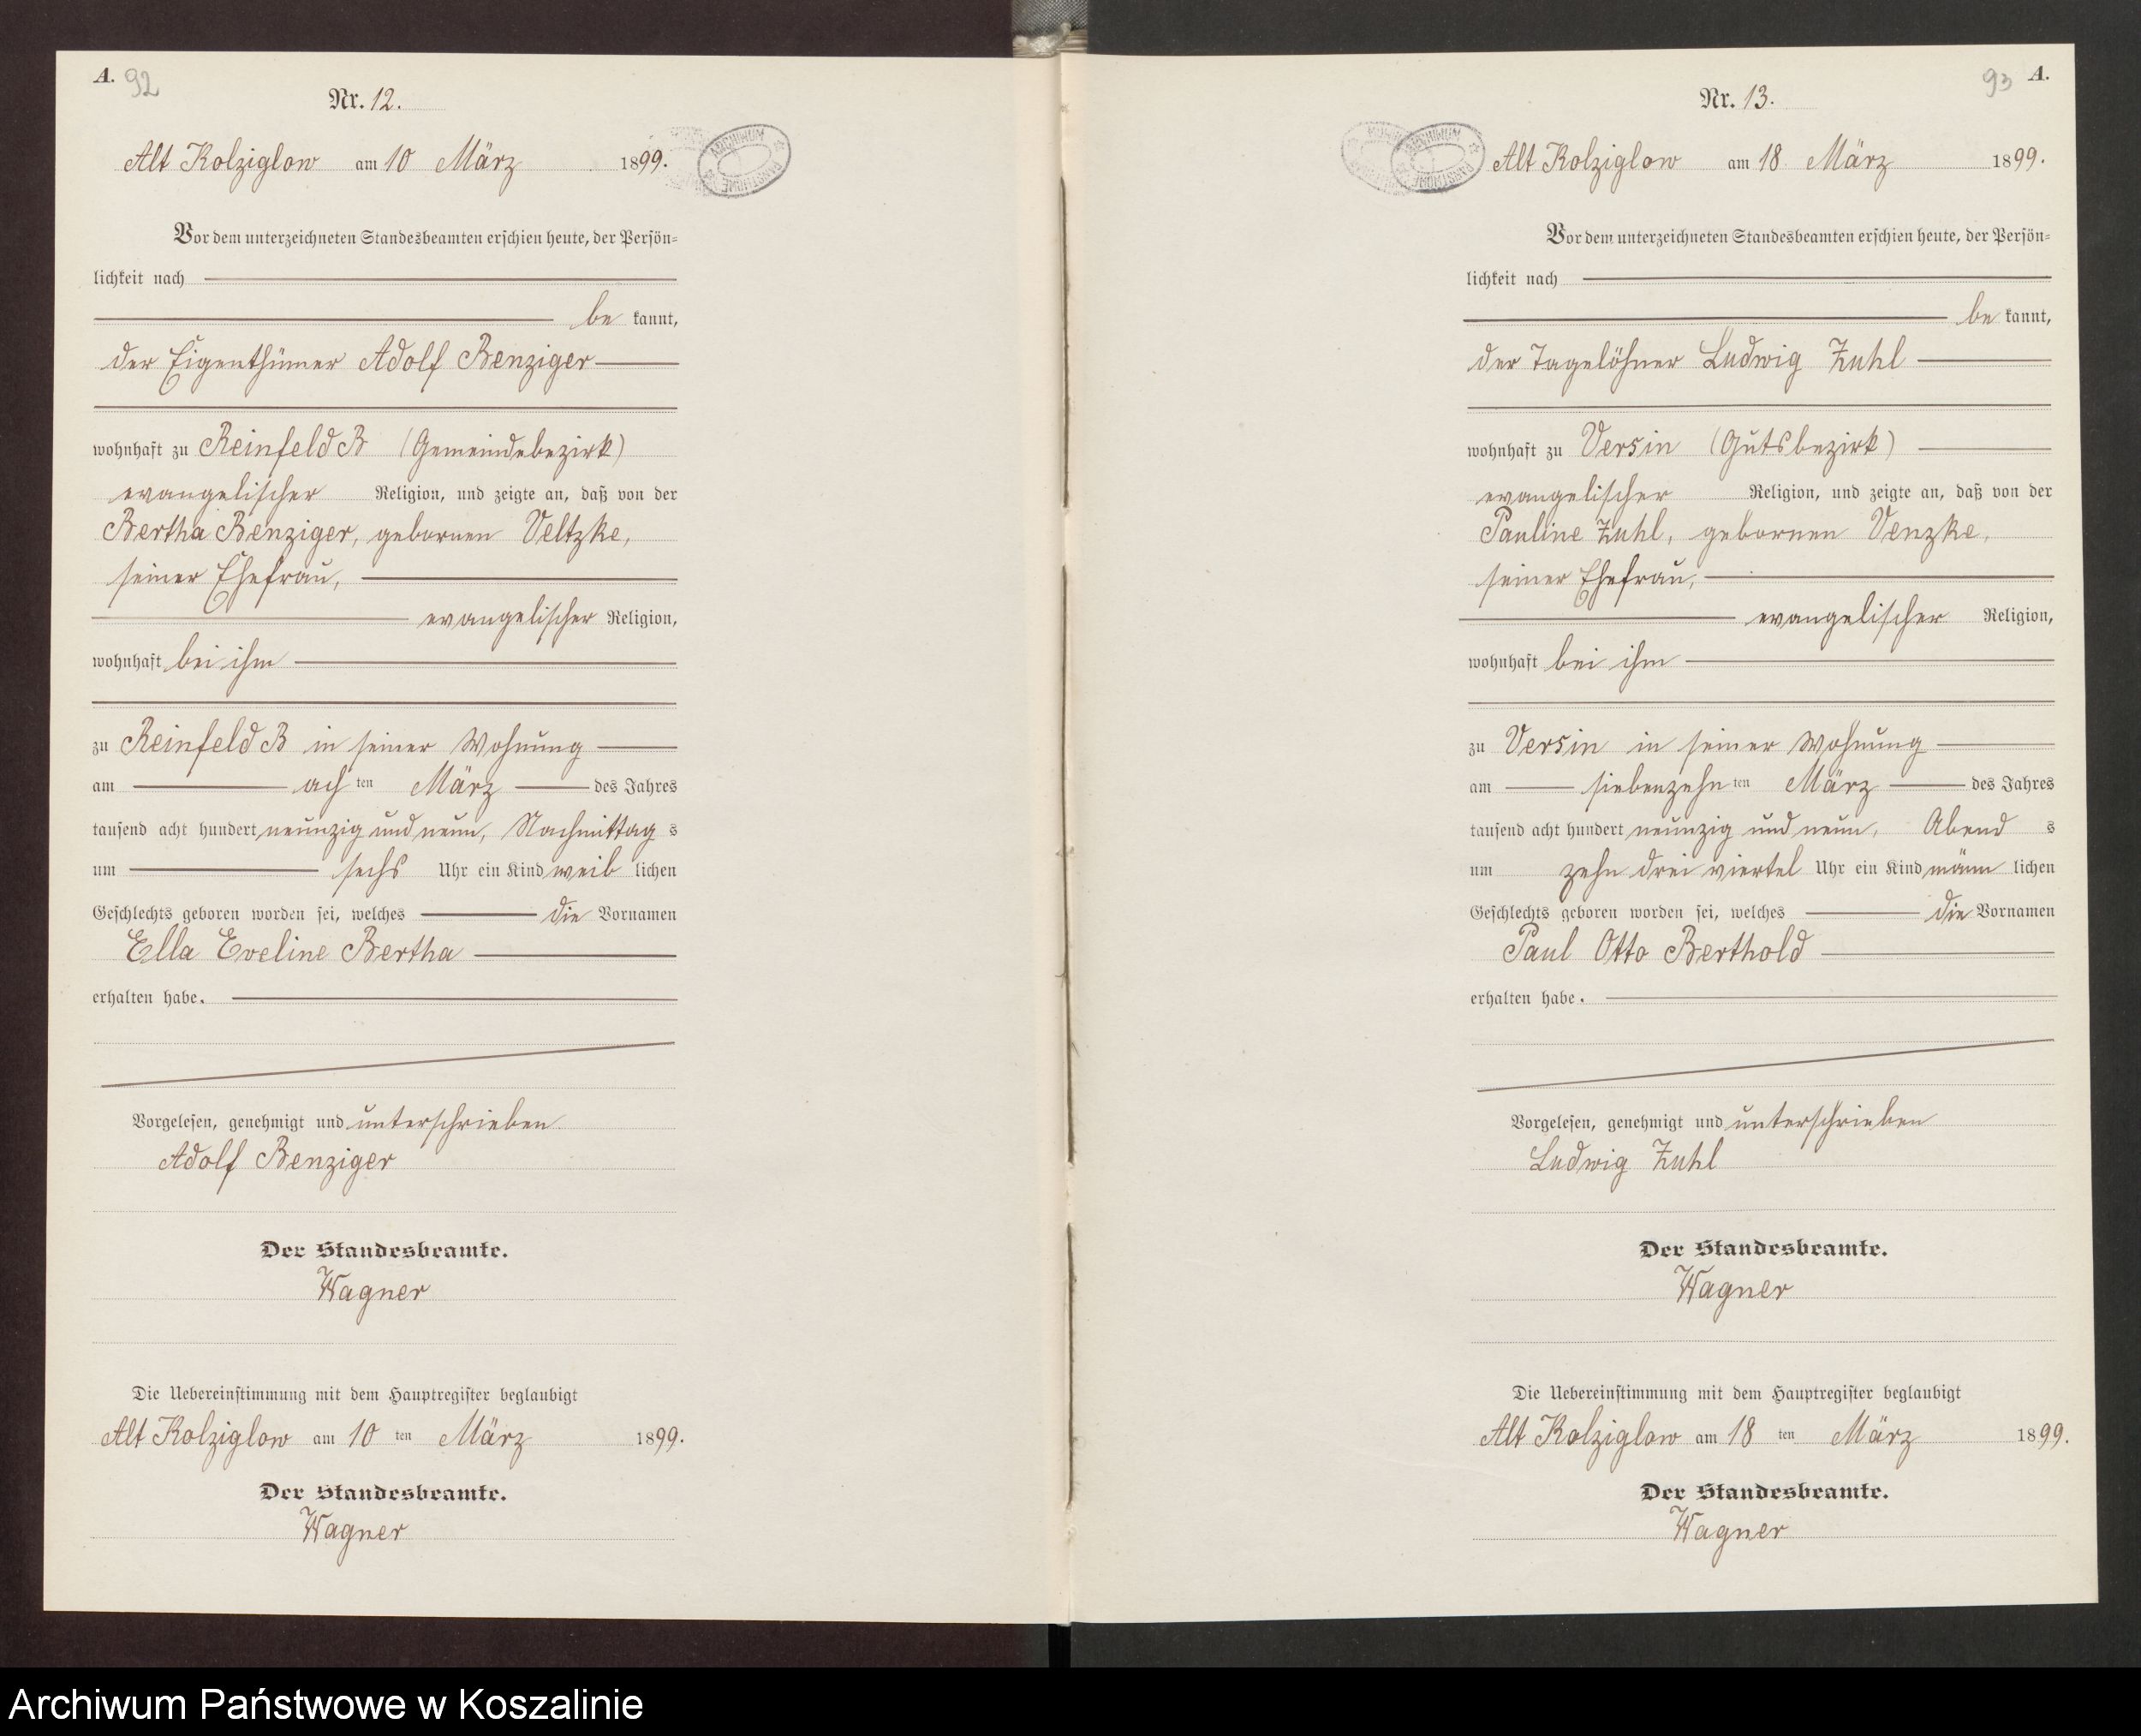 A. 92
Nr. 12.
Alt Kolziglow am 10 März 1899.
Vor dem unterzeichneten Standesbeamten erschien heute, der Persön-
lichkeit nach
be kannt,
der Eigenthümer Adolf Benziger
wohnhaft zu Reinfeld B (Gemeindebezirk)
evangelischer Religion, und zeigte an, daß von der
Bertha Benziger, gebornen Veltzke,
seiner Ehefrau,
evangelischer Religion,
wohnhaft bei ihm
zu Reinfeld B in seiner Wohnung
am ach ten März des Jahres
tausend acht hundert neunzig und neun, Nachmittag s
um sechs Uhr ein Kind weib lichen
Geschlechts geboren worden sei, welches die Vornamen
Ella Eveline Bertha
erhalten habe.
Vorgelesen, genehmigt und unterschrieben
Adolf Benziger
Der Standesbeamte.
Wagner
Die Uebereinstimmung mit dem Hauptregister beglaubigt
Alt Kolziglow am 10 ten März 1899.
Der Standesbeamte.
Wagner
93 A.
Nr. 13.
Alt Kolziglow am 18 März 1899.
Vor dem unterzeichneten Standesbeamten erschien heute, der Persön-
lichkeit nach
be kannt,
der Tagelöhner Ludwig Zuhl
wohnhaft zu Versin (Gutsbezirk)
evangelischer Religion, und zeigte an, daß von der
Pauline Zuhl, gebornen Venzke,
seiner Ehefrau,
evangelischer Religion,
wohnhaft bei ihm
zu Versin in seiner Wohnung
am siebenzehn ten März des Jahres
tausend acht hundert neunzig und neun, Abend s
um zehn drei viertel Uhr ein Kind männ lichen
Geschlechts geboren worden sei, welches die Vornamen
Paul Otto Berthold
erhalten habe.
Vorgelesen, genehmigt und unterschrieben
Ludwig Zuhl
Der Standesbeamte.
Wagner
Die Uebereinstimmung mit dem Hauptregister beglaubigt
Alt Kolziglow am 18 ten März 1899.
Der Standesbeamte.
Wagner
Archiwum Państwowe w Koszalinie